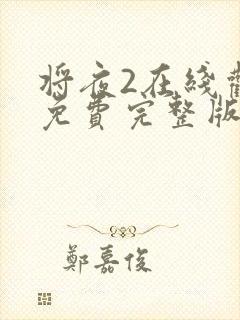 将夜2在綫
免費完整版
鄭嘉俊